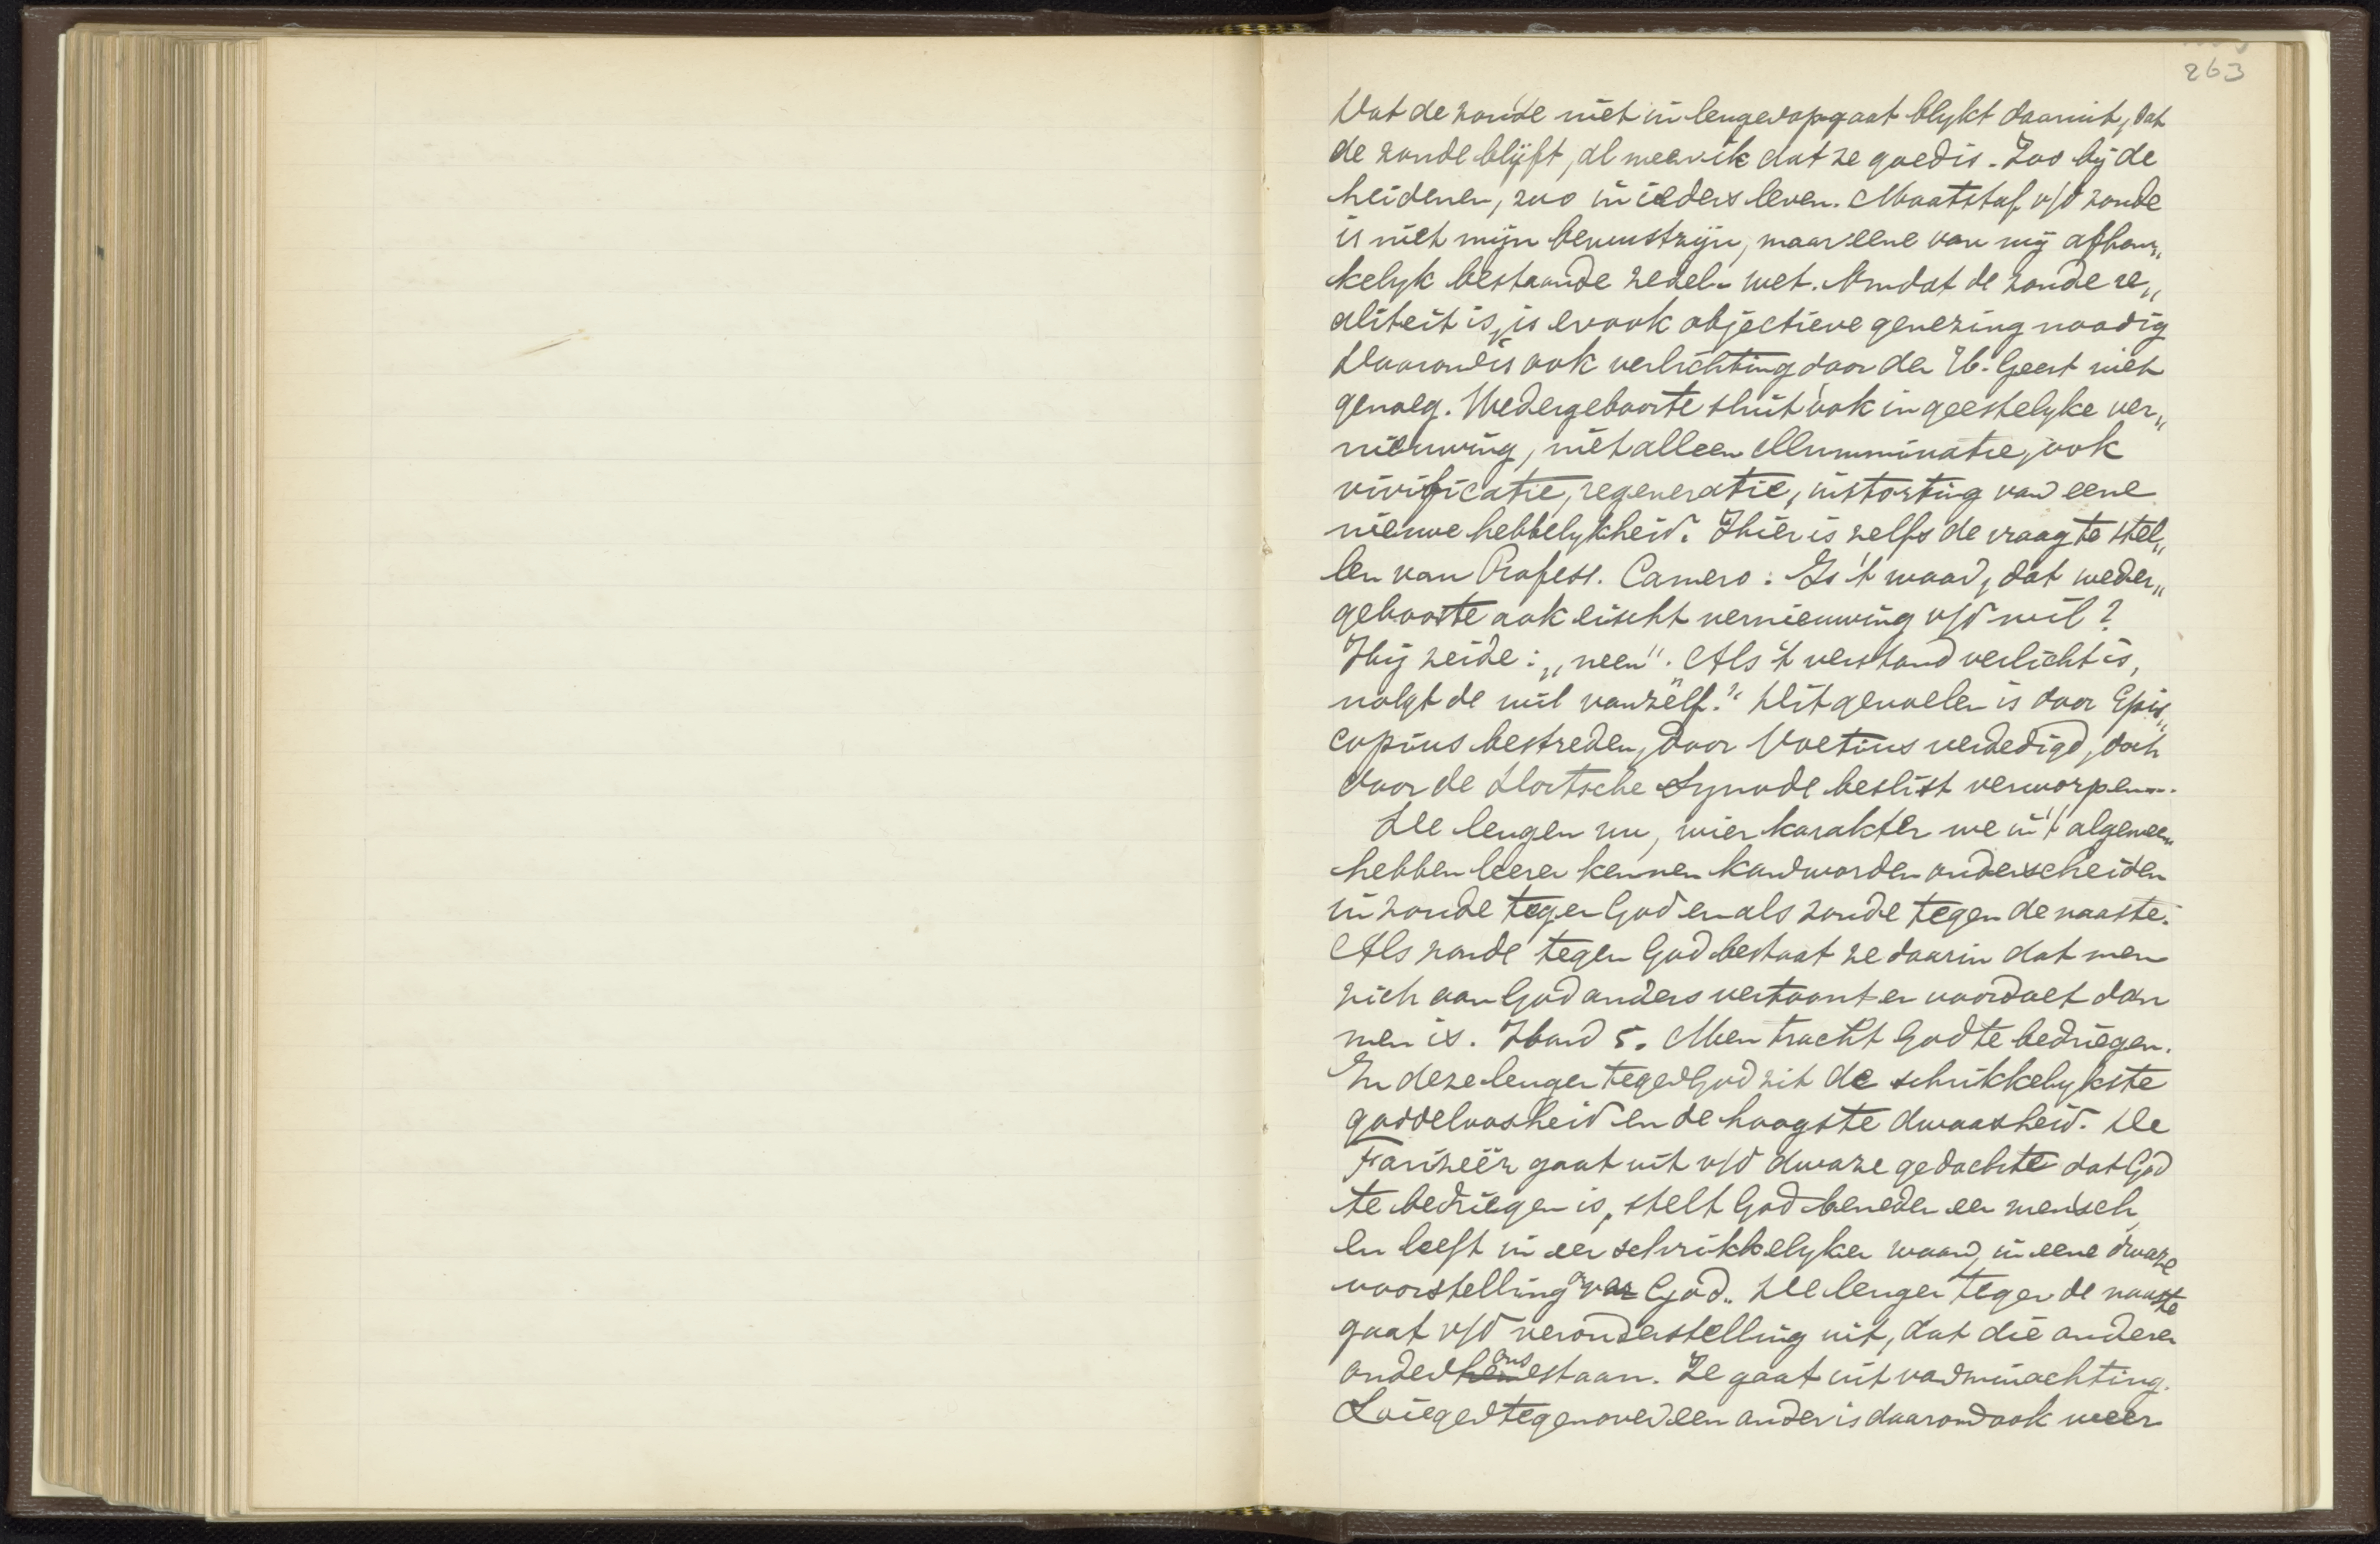 263
Dat de zonde niet in leugen opgaat blykt daaruit, dat
de zonde blijft, al meen ik dat ze goed is. Zoo bij de
heidenen, zoo in ieders leven. Maatstaf v/d zonde
is niet mijn bewustzijn, maar eene van mij afhan„
kelyk bestaande zedel. wet. Omdat de zonde re„
aliteit is, is er ook objectieve genezing noodig
Daarom is ook verlichting door den H. Geest niet
genoeg. Wedergeboorte sluit ook in geestelyke ver„
nieuwing, niet alleen illumminatie, ook
vivificatie, regeneratie, instorting van eene
nieuwe hebbelykheid. Hier is zelfs de vraag te stel„
len van Profess. Camero: Is 't waar, dat weder„
geboorte ook eischt vernieuwing v/d wil?
Hij zeide: „neen". Als 't verstand verlicht is,
volgt de wil vanzelf." Dit gevoelen is door Epis„
copius bestreden, door Voetius verdedigd, doch
door de Dortsche Synode beslist verworpen.
De leugen nu, wier karakter we in 't algemeen
hebben leeren kennen kan worden onderscheiden
in zonde tegen God en als zonde tegen de naaste.
Als zonde tegen God bestaat ze daarin dat men
zich aan God anders vertoont en voordoet dan
men is. Hand 5. Men tracht God te bedriegen.
In deze leugen tegen God zit de schrikkelykste
goddeloosheid en de hoogste dwaasheid. De
Farizeër gaat uit v/d dwaze gedachte dat God
te bedriegen is, stelt God beneden een mensch
en leeft in een schrikkelyken waan, in eene dwaze
voorstelling van God. De leugen tegen de naaste
gaat v/d veronderstelling uit, dat die anderen
onder hem ons staan. Ze gaat uit van minachting.
Liegen tegenover een ander is daarom ook weer